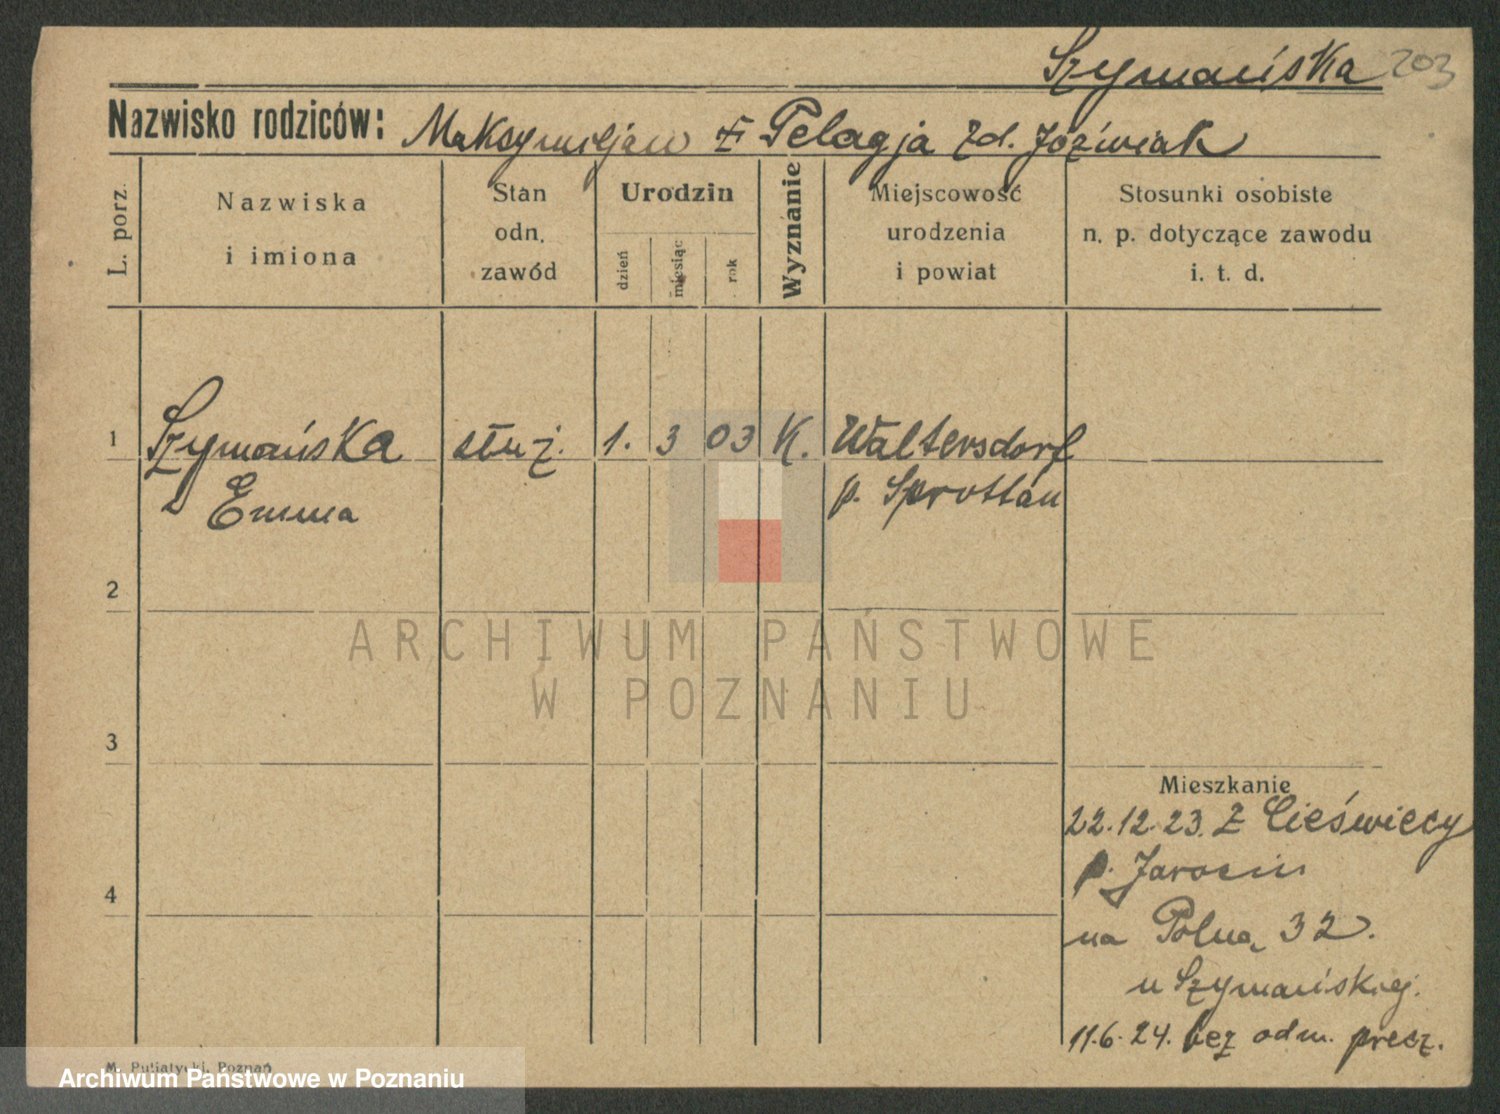 Szymańska 203
Nazwisko rodziców: Maksymiljan i Pelagja zd. Jóźwiak
L. porz.
Nazwiska
i imiona
Stan
odn.
zawód
Urodzin
dzień
miesiąc
rok
Wyznanie
Miejscowość
urodzenia
i powiat
Stosunki osobiste
n. p. dotyczące zawodu
i. t. d.
1 Szymańska służ. 1. 3 03 K. Waltersdorf
Emma p. Sprottau
2
3
4
Mieszkanie
22.12.23. z Cieświecy
p. Jarocin
na Polną 32.
u Szymańskiej.
11.6.24. bez odm. precz.
ARCHIWUM PAŃSTWOWE
W POZNANIU
M. Putiatycki, Poznań
Archiwum Państwowe w Poznaniu